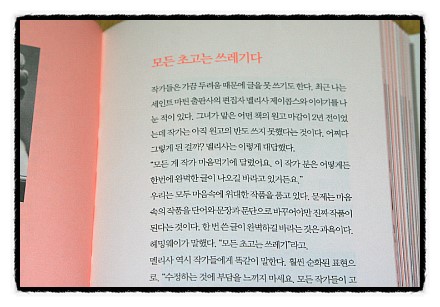 모든 초고는 쓰레기다
작가들은 가끔 두려움 때문에 글을 못 쓰기도 한다. 최근 나는
세인트 마틴 출판사의 편집자 멜리사 제이콥스와 이야기를 나
눈 적이 있다. 그녀가 맡은 어떤 책의 원고 마감이 2년 전이었
는데 작가는 아직 원고의 반도 쓰지 못했다는 것이다. 어쩌다
그렇게 된 걸까? 멜리사는 이렇게 대답했다.
"모든 게 작가 마음먹기에 달렸어요. 이 작가 분은 어떻게든
한번에 완벽한 글이 나오길 바라고 있거든요."
우리는 모두 마음속에 위대한 작품을 품고 있다. 문제는 마음
속의 작품을 단어와 문장과 문단으로 바꾸어야만 진짜 작품이
된다는 것이다. 한 번 쓴 글이 완벽하길 바라는 것은 과욕이다.
헤밍웨이가 말했다. "모든 초고는 쓰레기"라고.
멜리사 역시 작가들에게 똑같이 말한다. 훨씬 순화된 표현으
로. "수정하는 것에 부담을 느끼지 마세요. 모든 작가들이 고